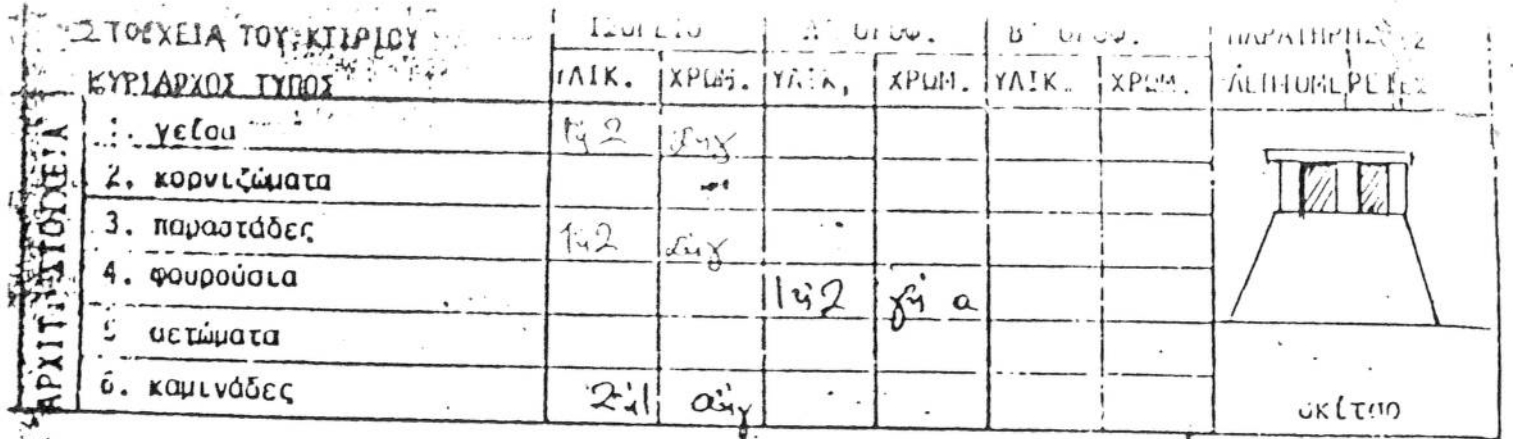 ΣΤΟΙΧΕΙΑ ΤΟΥ ΚΤΙΡΙΟΥ ΙΣΟΓΕΙΟ Α' ΟΡΟΦ. Β' ΟΡΟΦ. ΠΑΡΑΤΗΡΗΣΕΙΣ
ΚΥΡΙΑΡΧΟΣ ΤΥΠΟΣ ΥΛΙΚ. ΧΡΩΜ. ΥΛΙΚ. ΧΡΩΜ. ΥΛΙΚ. ΧΡΩΜ. ΛΕΠΤΟΜΕΡΕΙΕΣ
ΑΡΧΙΤ. ΣΤΟΙΧΕΙΑ
1. γείσα 1ή2
2. κορνιζώματα
3. παραστάδες 1ή2
4. φουρούσια 1ή2 γή α
5 αετώματα
6. καμινάδες 2ή1 αήγ
σκίτσο